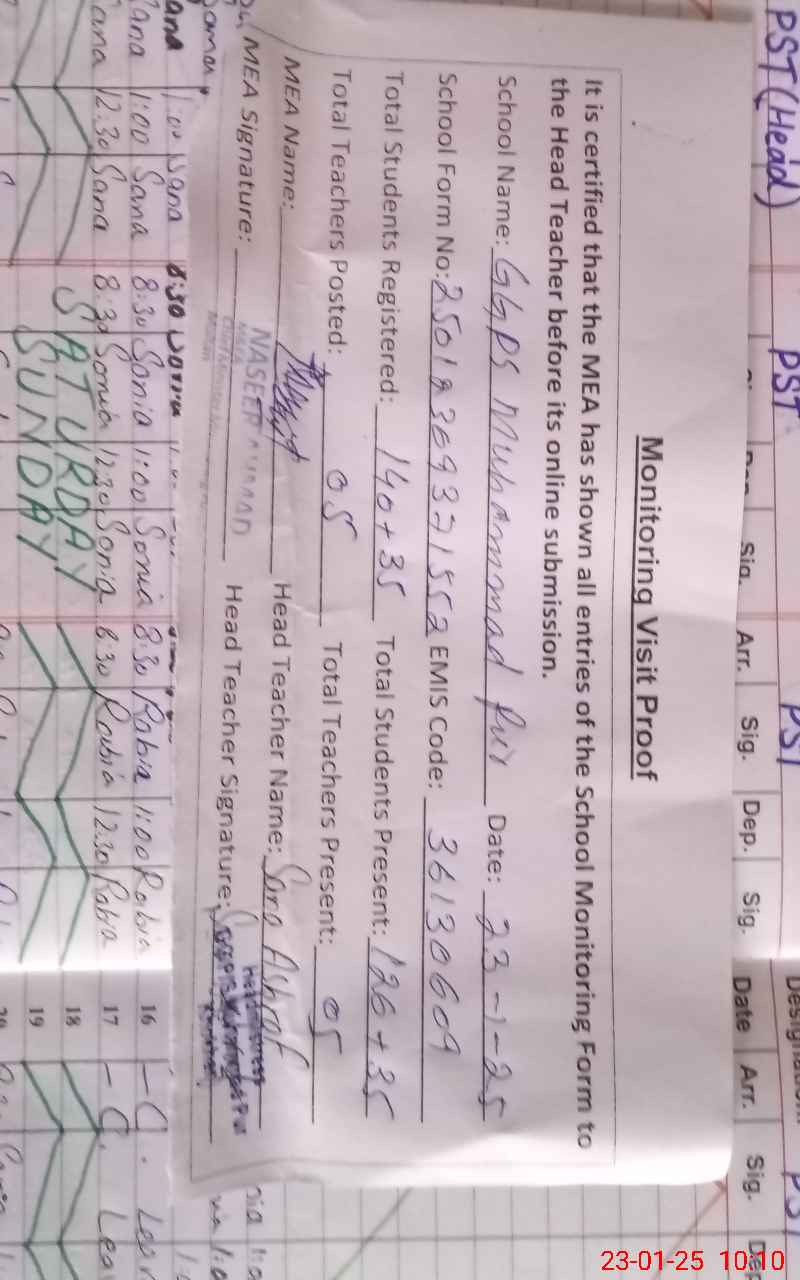 PST (Head) PST PST PST
Sig. Arr. Sig. Dep. Sig. Date Arr. Sig.
Monitoring Visit Proof
It is certified that the MEA has shown all entries of the School Monitoring Form to
the Head Teacher before its online submission.
School Name: GGPS Muhammad Pur Date: 23-1-25
School Form No: EMIS Code: 36130609
Total Students Registered: 140+35 Total Students Present: 126+35
Total Teachers Posted: 05 Total Teachers Present: 05
MEA Name: Head Teacher Name: Sana Ashraf
NASEER
MEA Signature: Head Teacher Signature:
Headmistress
1:00 Sana 8:30
Sana 1:00 Sana 8:30 Sonia 1:00 Sonia 8:30 Rabia 1:00 Rabia 16 - C. Leav
Sana 12:30 Sana 8:30 Sonia 12:30 Sonia 8:30 Rabia 12:30 Rabia 17 - C. Lea
SATURDAY 18
SUNDAY 19
20
23-01-25 10:10